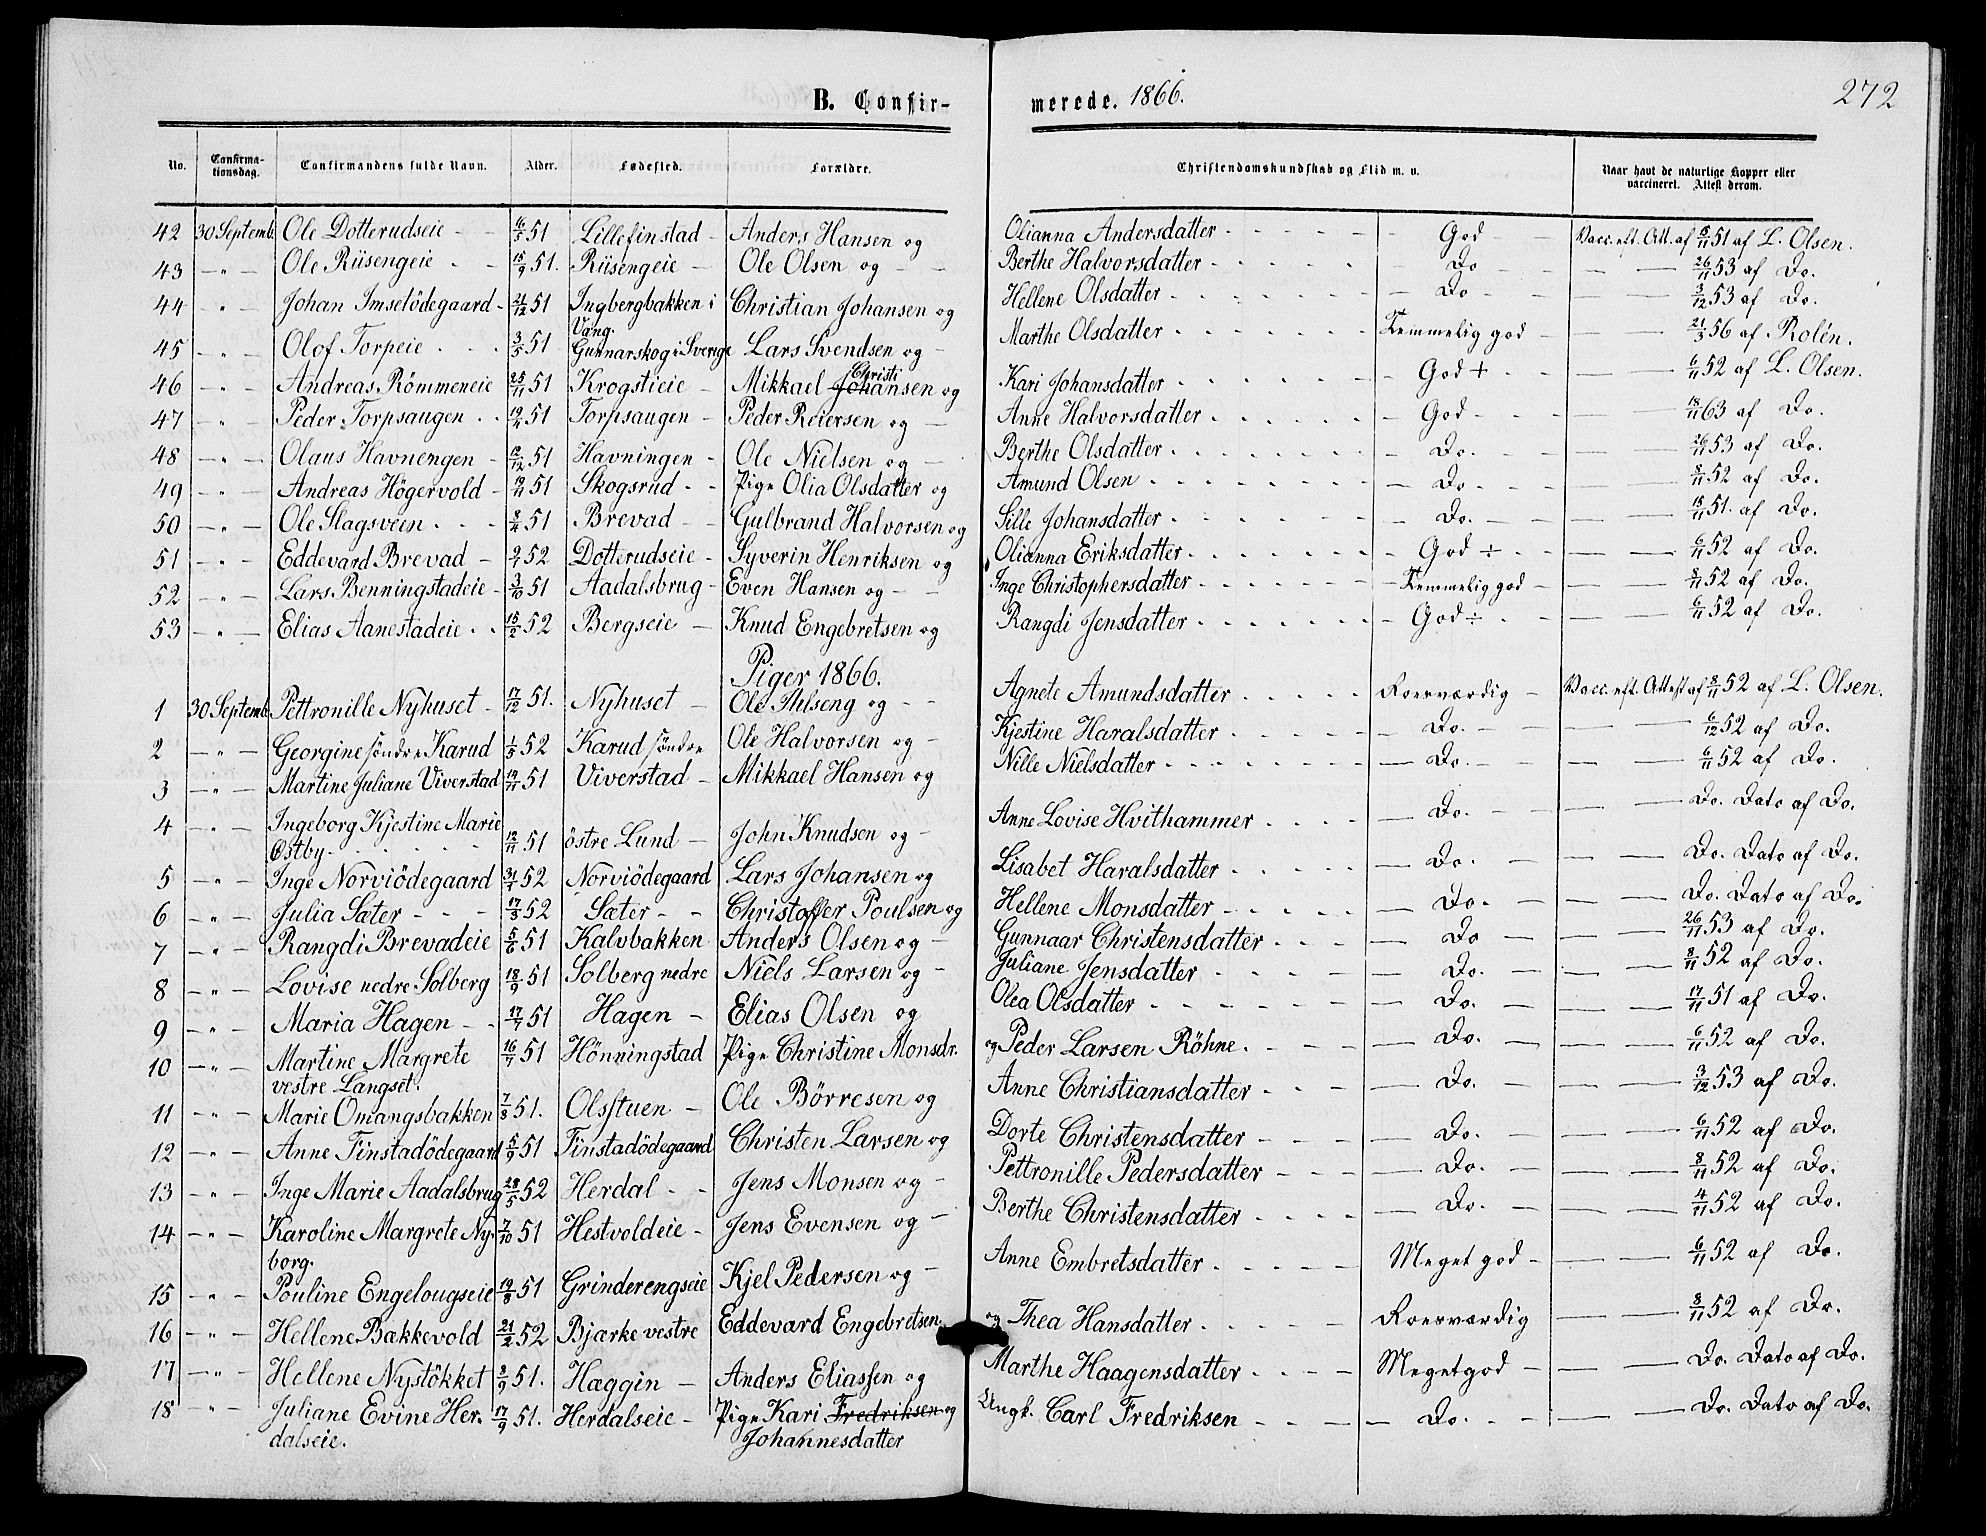 272
B. Confir- merede. 1866.
No. Confirma-tionsdag. Confirmandens fulde Navn. Alder. Fødested. Forældre. Christendomskundskab og Flid m. v. Naar havt de naturlige Kopper eller vaccineret. Attest derom.
42 30 Septemb. Ole Dotterudseie - - 16/5 51 Lillefinstad - Anders Hansen og Olianna Andersdatter - - - - - God - Vacc. eft. Att. af 15/11 51 af L. Olsen.
43 - " - Ole Riisengeie - - 15/9 51. Riisengeie - Ole Olsen og - - Berthe Halvorsdatter - - - - - Do - - - 26/11 53 af Do.
44 - " - Johan Imselödegaard - 21/12 51 Ingbergbakken i Vang. Christian Johansen og Hellene Olsdatter - - - - - Do - - - 3/12 53 af Do.
45 - " - Olof Torpeie - - - 3/5 51 Gunnarskog i Sverige Lars Svendsen og - Marthe Olsdatter - - - - - Temmelig god - - 21/3 56 af Rolén.
46 - " - Andreas Römmeneie 25/11 51 Krogstieie - Mikkael Johansen Christi og Kari Johansdatter - - - - - God + - - 6/11 52 af L. Olsen.
47 - " - Peder Torpsaugen - - 19/4 51 Torpsaugen - Peder Reiersen og - Anne Halvorsdatter - - - - - God - - - 18/11 63 af Do.
48 - " - Olaus Havnengen - 12/12 51 Havningen - Ole Nielsen og - Berthe Olsdatter - - - - - Do. - - - 26/11 53 af Do.
49 - " - Andreas Högervold - 19/11 51 Skogsrud - - Pige Olia Olsdatter og Amund Olsen - - - - - Do - - - 8/11 52 af Do.
50 - " - Ole Slagsveen - - - 8/4 51 Brevad - - Gulbrand Halvorsen og Sille Johansdatter - - - - - Do. - - 15/11 51. af Do.
51 - " - Eddevard Brevad - 9/1 52 Dotterudseie - Syverin Henriksen og Olianna Eriksdatter - - - - - God ÷ - - 6/11 52 af Do.
52 - " - Lars Benningstadeie - 3/10 51 Aadalsbrug - Even Hansen og - - Inge Christophersdatter - - - - - Temmelig god - - 8/11 52 af Do.
53 - " - Elias Aanestadeie - - 15/2 52 Bergseie - Knud Engebretsen og Rangdi Jensdatter - - - - - God ÷ - - 6/11 52 af Do.
Piger 1866.
1 30 Septemb. Pettronille Nyhuset - 17/12 51. Nyhuset - Ole Ihlseng og - - Agnete Amundsdatter - - - - Roesværdig - Vacc. eft. Attest af 8/11 52 af L. Olsen.
2 - " - Georgine söndre Karud 1/5 52 Karud söndre Ole Halvorsen og - Kjestine Haralsdatter - - - - Do. - - - 6/12 52 af Do.
3 - " - Martine Juliane Viverstad 19/11 51 Viverstad - Mikkael Hansen og Nille Nielsdatter - - - - - Do. - - - 6/11 52 af Do.
4 - " - Ingeborg Kjestine Marie
Østby - - - - - 12/11 51 östre Lund - John Knudsen og - Anne Lovise Hvithammer - - - - Do. - - - Do. Dato af Do.
5 - " - Inge Norviödegaard 31/1 52 Norviödegaard Lars Johansen og Lisabet Haralsdatter - - - - Do. - - - Do. Dato af Do.
6 - " - Julia Sæter - - - 17/3 52 Sæter - - Christoffer Poulsen og Hellene Monsdatter - - - - Do. - - - Do. Dato af Do.
7 - " - Rangdi Brevadeie 5/6 51 Kalvbakken Anders Olsen og - Gunnaar Christensdatter - - - - Do - - - 26/11 53 af Do.
8 - " - Lovise nedre Solberg 18/9 51 Solberg nedre Niels Larsen og - Juliane Jensdatter - - - - Do. - - - 8/11 52 af Do.
9 - " - Maria Hagen - - 17/7 51 Hagen - Elias Olsen og Olea Olsdatter - - - - - Do. - - - 17/11 51 af Do.
10 - " - Martine Margrete
vestre Langset. 16/7 51 Hönningstad Pige Christine Monsdr. og Peder Larsen Röhne. - - - - Do. - - - 6/11 52 af Do.
11 - " - Marie Omangsbakken 7/8 51. Olsstuen - Ole Börresen og Anne Christiansdatter - - - Do. - - - 3/12 53 af Do.
12 - " - Anne Finstadödegaard 5/9 51 Finstadödegaard Christen Larsen og Dorte Christensdatter - - - - Do. - - - 6/11 52 af Do.
13 - " - Inge Marie Aadalsbrug 28/5 52 Herdal - - Jens Monsen og - Pettronille Pedersdatter - - - - Do. - - - 8/11 52 af Do.
14 - " - Karoline Margrete Ny-
borg. 7/10 51 Hestvoldeie - Jens Evensen og - Berthe Christensdatter - - - - Do. - - - 4/11 52 af Do.
15 - " - Pouline Engelougseie 19/8 51 Grinderengseie Kjel Pedersen og - Anne Embretsdatter - - - - Meget god - - 6/11 52 af Do.
16 - " - Hellene Bakkevold 21/2 52 Bjærke vestre Eddevard Engebretsen og Thea Hansdatter - - - - Roesværdig - - 8/11 52 af Do.
17 - " - Hellene Nystökket 2/9 51. Hæggin - Anders Eliassen og Marthe Haagensdatter - - - - Meget god - - Do. Dato af Do.
18 - " - Juliane Evine Her-
dalseie. 17/9 51. Herdalseie - Pige Kari Fredriksen og
Johannesdatter Ungk. Carl Fredriksen - - - - Do. - - - Do. Dato af Do.